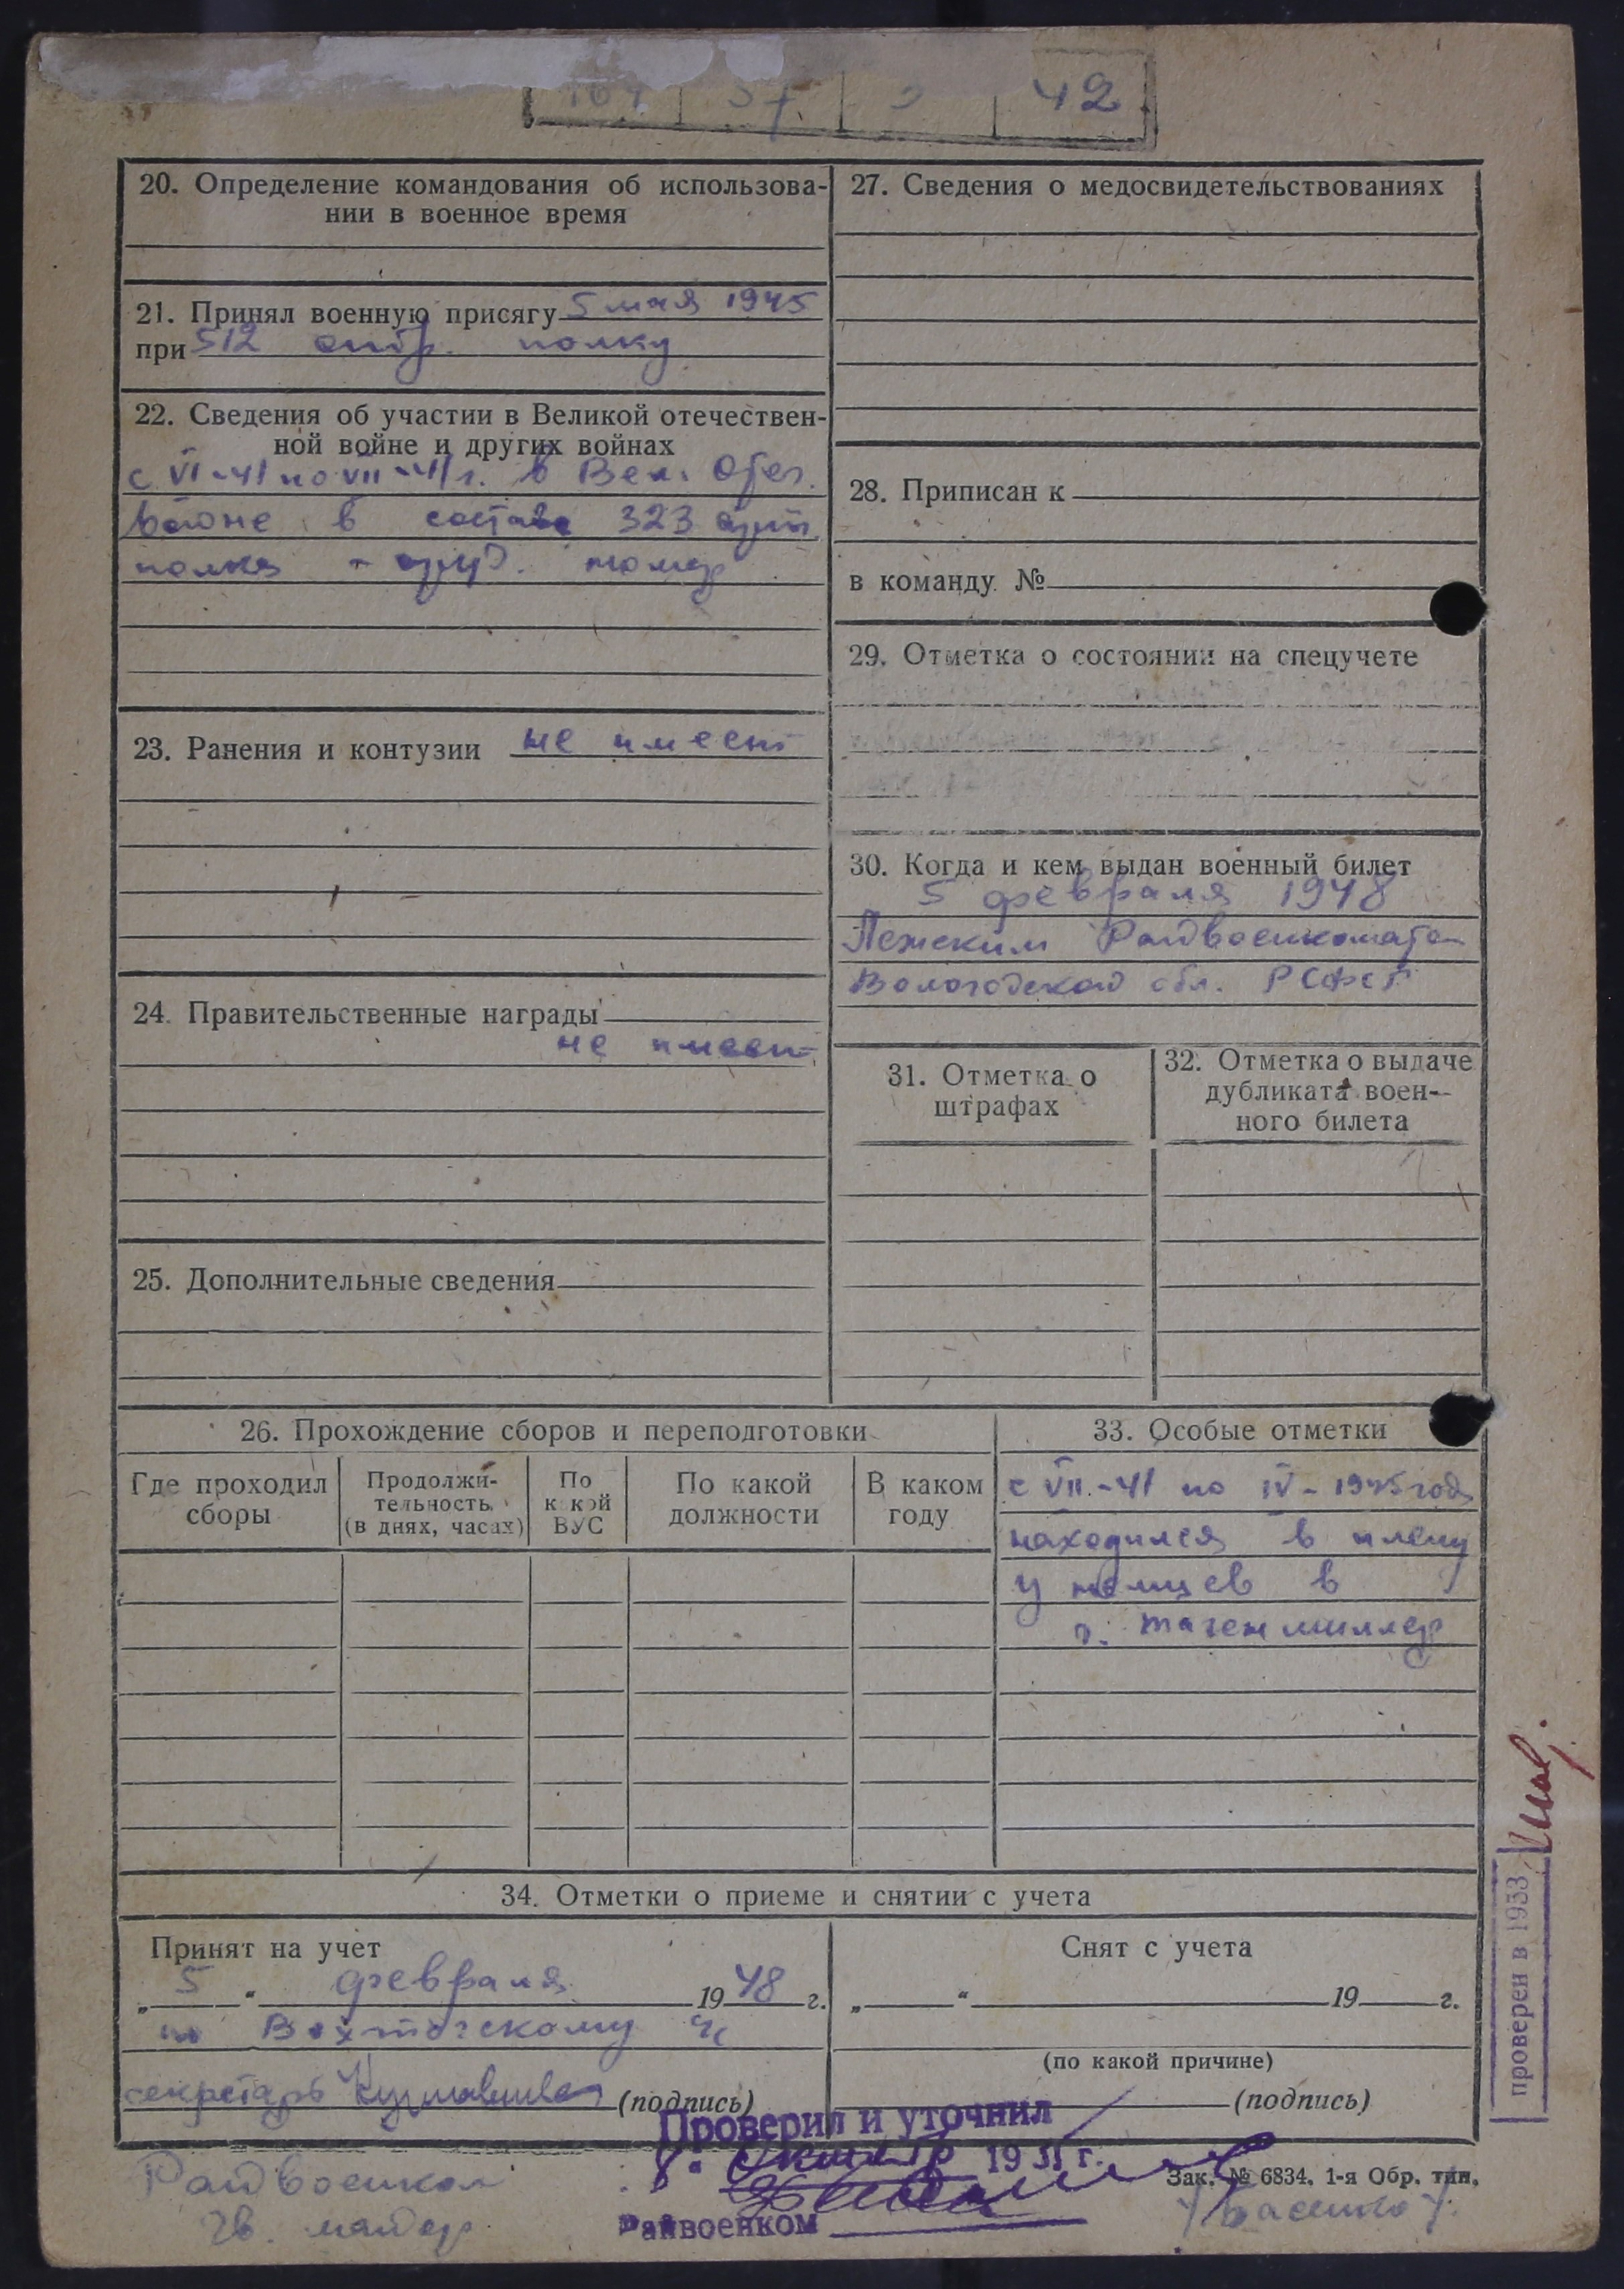 42
20. Определение командования об использова-
нии в военное время
21. Принял военную присягу 5 мая 1945
при 512 полку
22. Сведения об участии в Великой отечествен-
ной войне и других войнах
с VI-41 по VII-41 г. в Вел. Отеч.
войне в составе 323 арт.
полка - номер
23. Ранения и контузии не имеет
24. Правительственные награды
не имеет
25. Дополнительные сведения
27. Сведения о медосвидетельствованиях
28. Приписан к
в команду №
29. Отметка о состоянии на спецучете
30. Когда и кем выдан военный билет
5 февраля 1948
Лежским Райвоенкоматом
Вологодской обл. РСФСР
31. Отметка о
штрафах
32. Отметка о выдаче
дубликата воен-
ного билета
26. Прохождение сборов и переподготовки
Где проходил
сборы
Продолжи-
тельность
(в днях, часах)
По
какой
ВУС
По какой
должности
В каком
году
33. Особые отметки
с VII-41 по IV-1945 год
находился в плену
у немцев в
г.
34. Отметки о приеме и снятии с учета
Принят на учет
„5“ февраля 1948 г.
по Вохтогскому
секретарь (подпись)
Снят с учета
„ “ 19 г.
(по какой причине)
(подпись)
Проверил и уточнил
8 19 51 г.
Райвоенком
Зак. № 6834. 1-я Обр. тип.
Райвоенком
гв. майор
/Басенко/
проверен в 1953